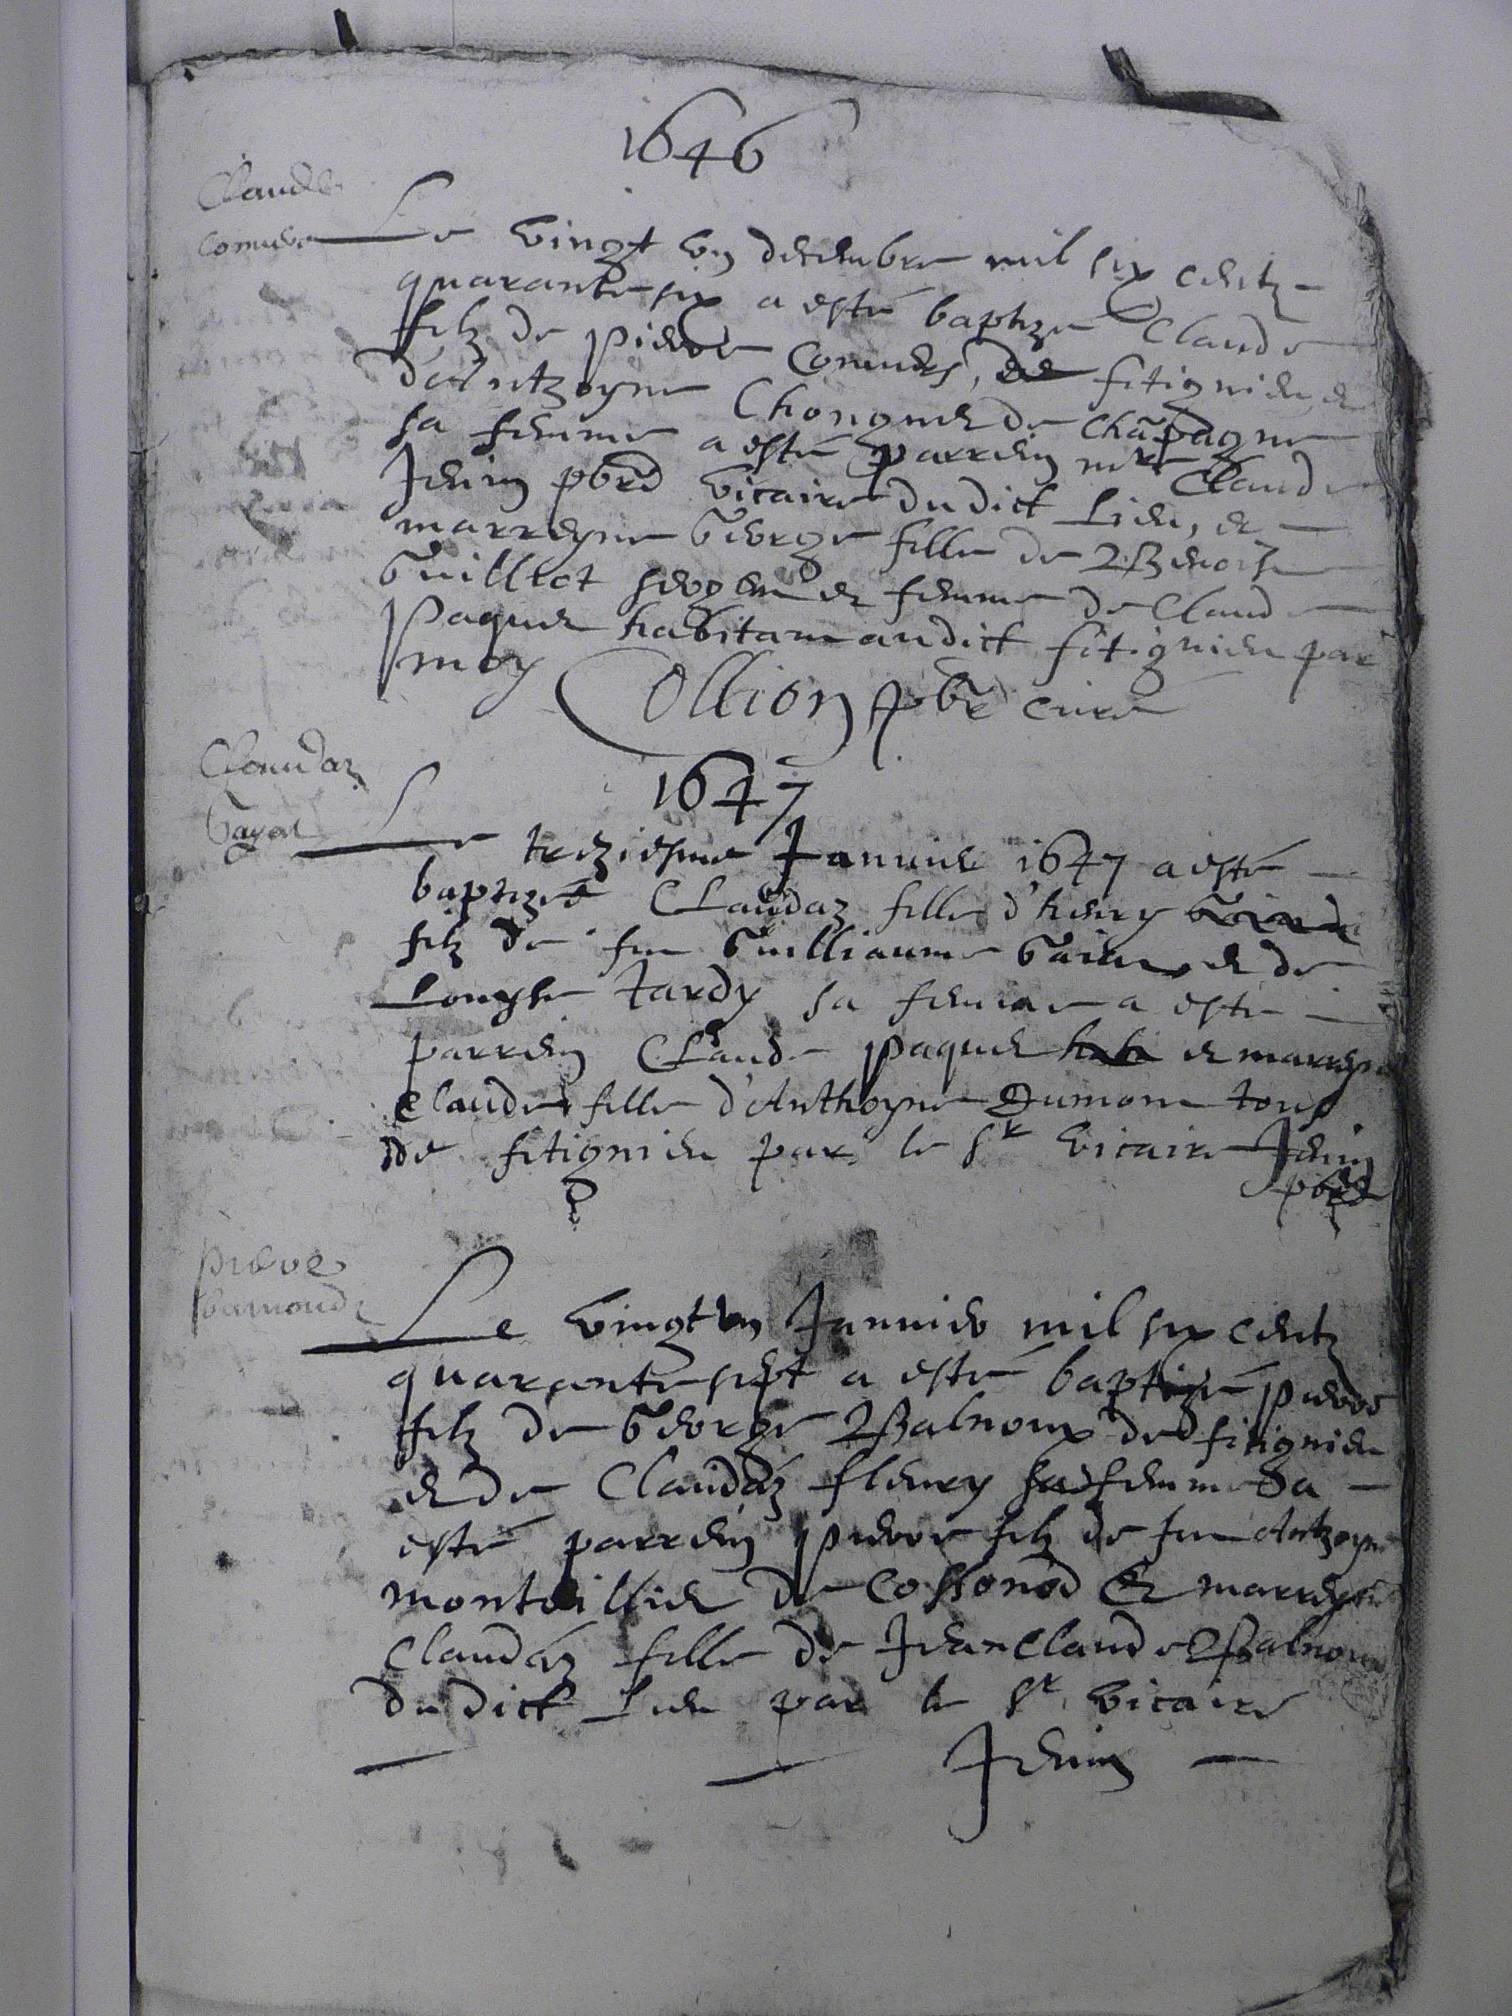 1646
Claude
Le vingt un decembre mil six centz
quarante six a esté baptize Claude
filz de Pierre de fitignieu et
d'Antzoyne de Chãpagne
sa femme a esté parrein mre Claude
Jenin pbre vicaire dudict lieu, et
marreyne George fille de Benoist
Guilliot et femme de Claude
Paquet habitant audict fitignieu par
moy
Collion pbre curé
Claudaz
1647
Le treziesme Janvier 1647 a esté
baptizée Claudaz fille d'henry
filz de feu Guilliaume et de
Louyse Tardy sa femme a esté
parrein Claude Paquet et marreyne
Claude fille d'Anthoyne Dumont tous
de fitignieu par le Sr vicaire Jenin
pbre
Pierre
Le vingt un Janvier mil six centz
quarante sept a esté baptizé Pierre
filz de George Balnoux de fitignieu
et de Claudaz fleury sa femme a
esté parrein Pierre filz de feu Antzoyne
monteillier de Cossonod et marreyne
Claudaz fille de Jean Claude Balnoux
du dict lieu par le Sr vicaire
Jenin